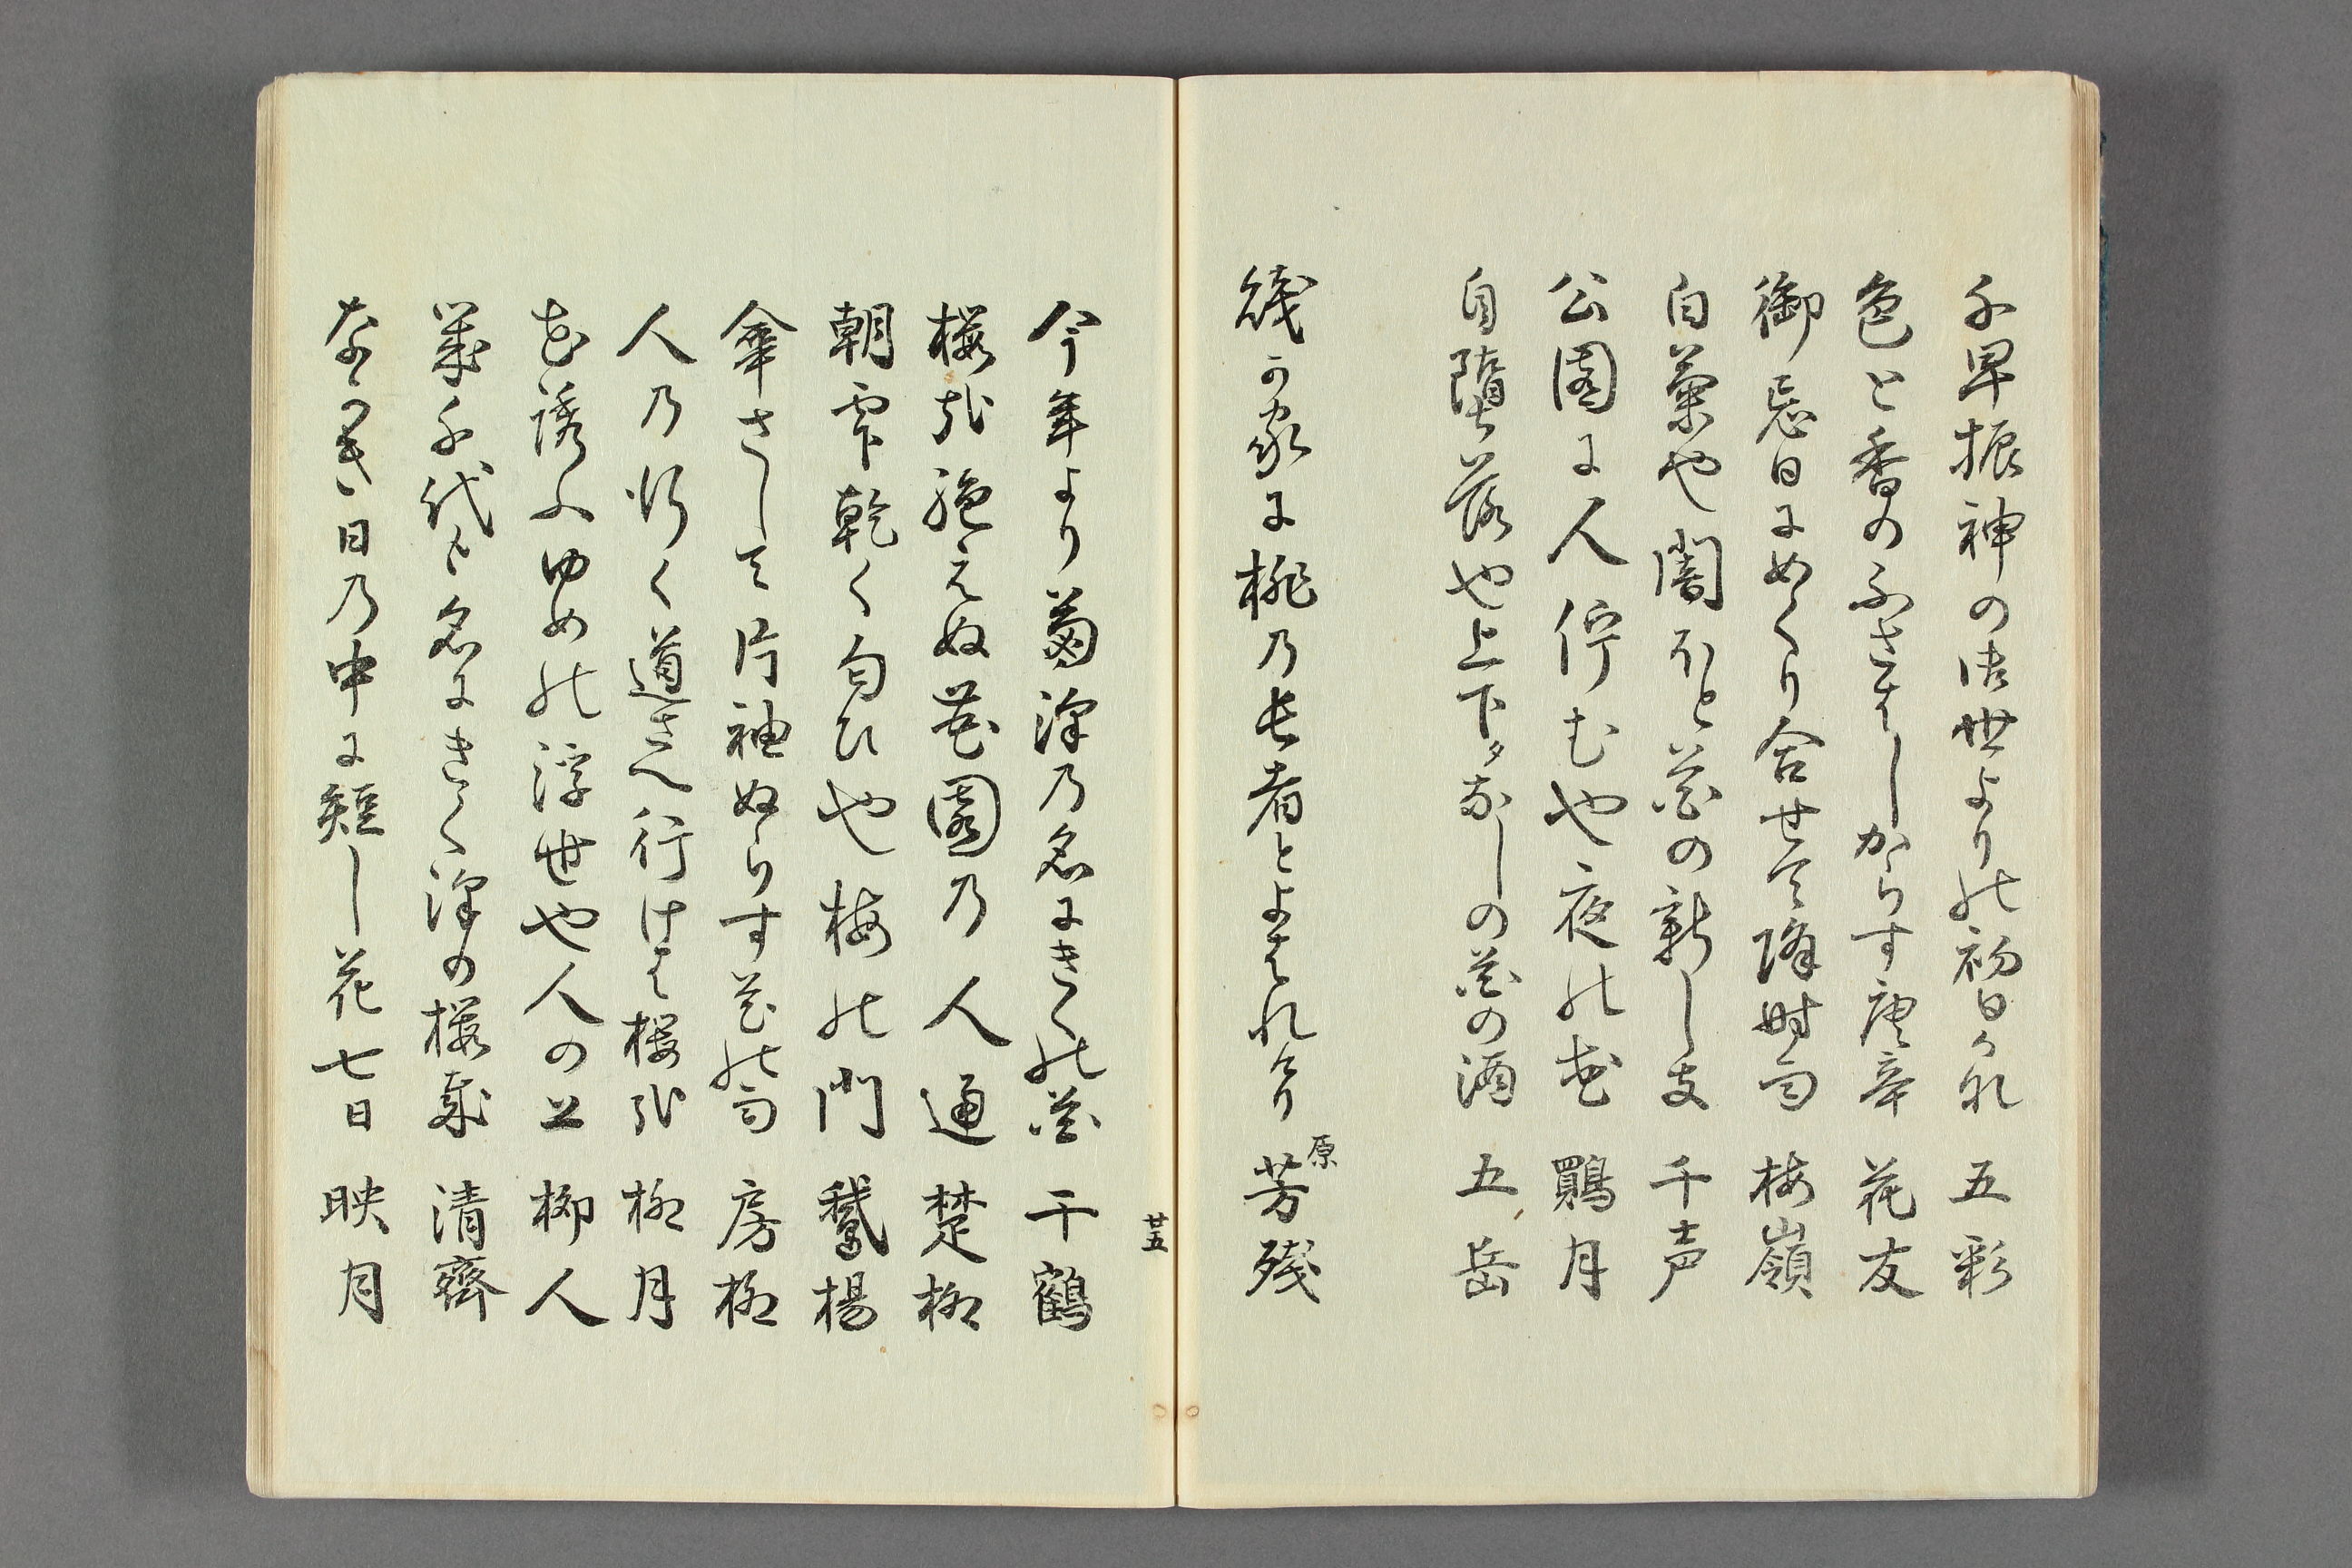 千早振神の御世よりの初日かな 五彩
色と香のふさはしからす唐辛 花友
御忌日にめくり合せて降時雨 梅嶺
白菊や闇ほと花の新し支 千声
公園に人佇むや夜の花 鸎月
自堕落や上下タなしの花の酒 五岳
賤か家に桃乃長者とよはれけり 原 芳残
廿五
今年より菊深乃名にきくの花 千鶴
桜花絶えぬ花園乃人通 楚柳
朝雫乾く匂ひや梅の門 鵞楊
傘さして片袖ぬらす花の雨 房柳
人乃行く道さへ行けは桜哉 柳月
花誘ふゆめの浮世や人の上 柳人
幾千代と名にきく深の桜哉 清齋
なかき日乃中に短し花七日 映月